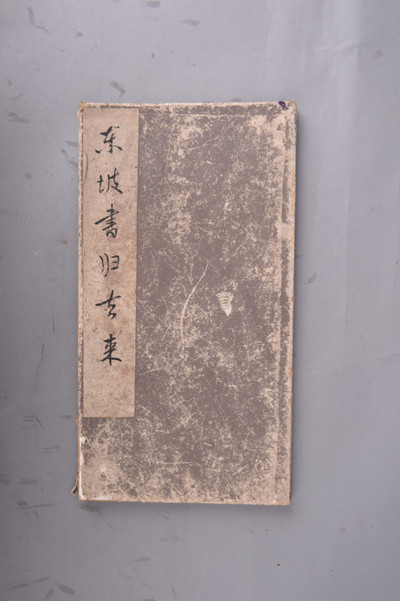 东坡书归去来